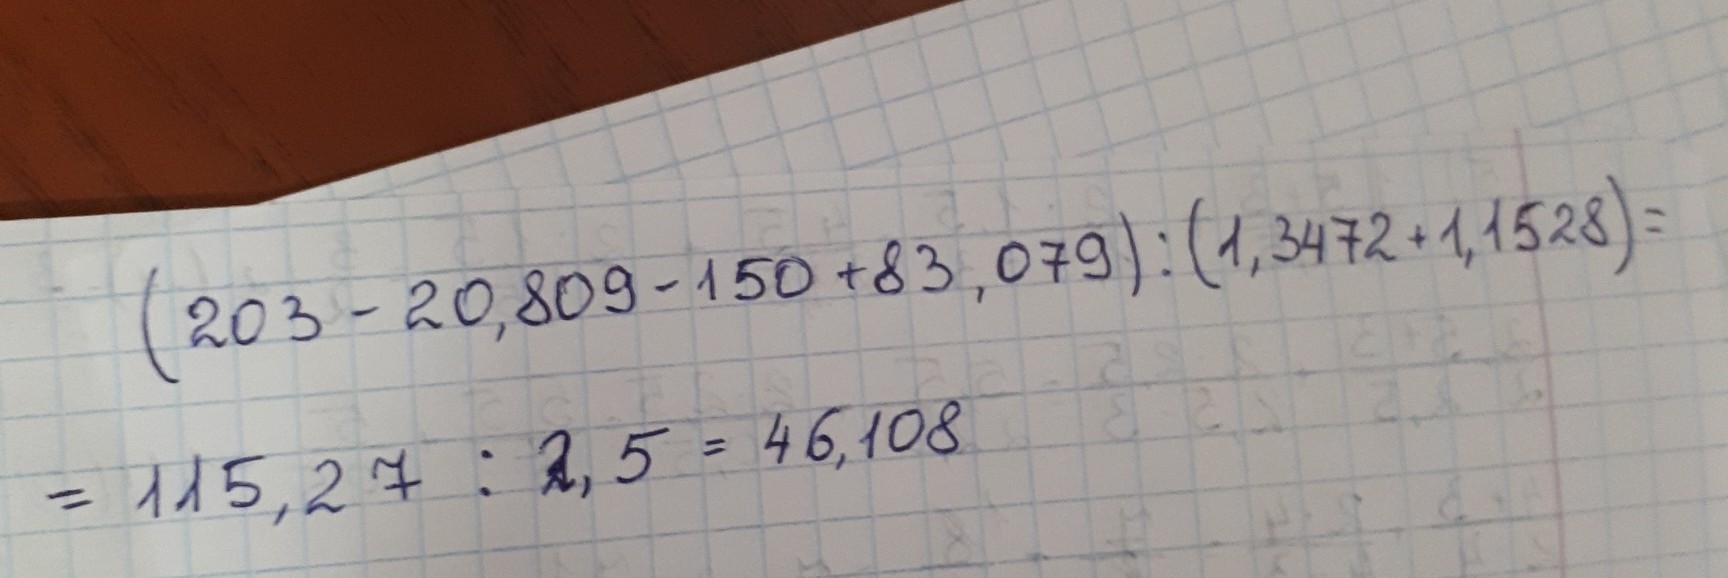 (203 - 20,809 - 150 + 83,079) : (1,3472 + 1,1528) =
= 115,27 : 2,5 = 46,108